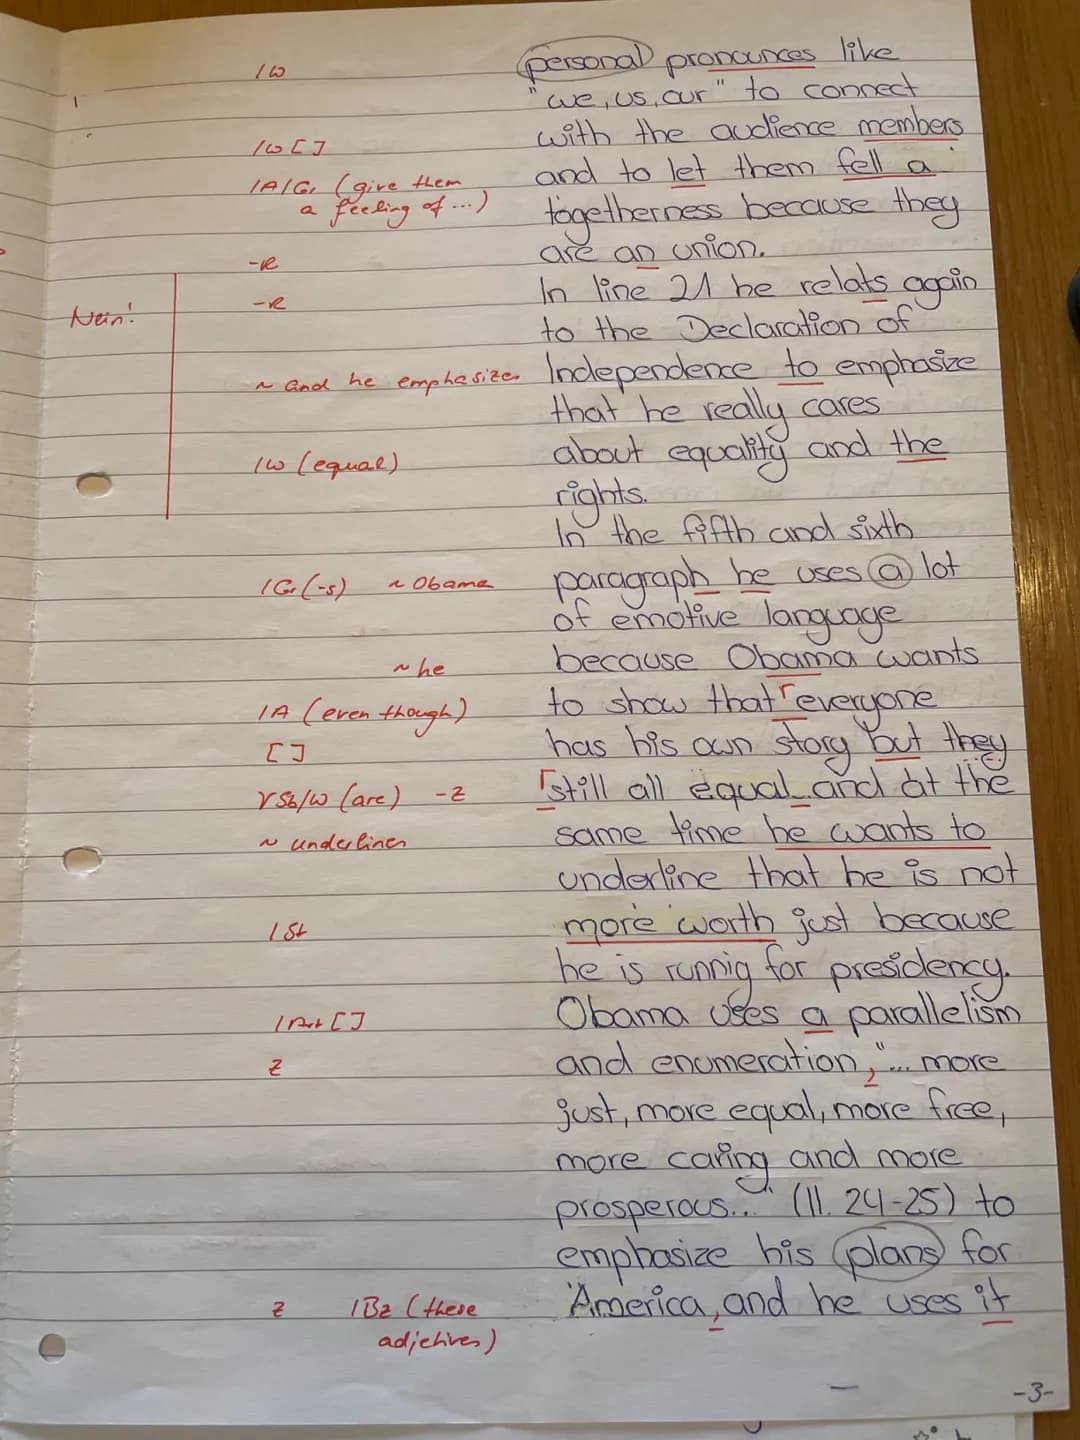 /W personal pronounces like
"we, us, our" to connect
/W [ ] with the audience members
/A/Gr (give them and to let them fell a
a feeling of ...) togetherness because they
-R are an union.
Nein! -R In line 21 he relats again
to the Declaration of
~ and he emphasizes Independence to emphasize
that he really cares
/W (equal) about equality and the
rights.
In the fifth and sixth
/Gr (-s) ~ Obama paragraph he uses a lot
of emotive language
~ he because Obama wants
/A (even though) to show that everyone
[ ] has his own story but they
√Sb/W (are) -Z still all equal and at the
~ underlines same time he wants to
underline that he is not
/St more worth just because
he is runnig for presidency.
/Art [ ] Obama uses a parallelism
Z and enumeration, "... more
just, more equal, more free,
more caring and more
prosperous..." (ll. 24-25) to
emphasize his plans for
Z /Bz (these America, and he uses it
adjectives)
-3-